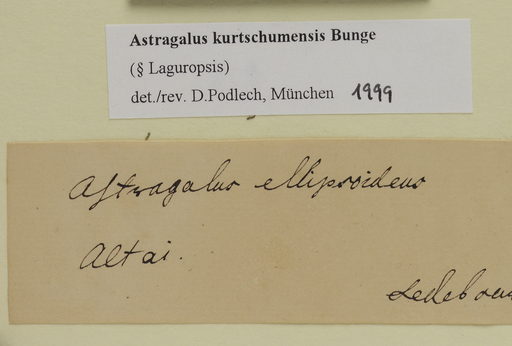 Astragalus kurtschumensis Bunge
(§ Laguropsis)
det./rev. D.Podlech, München 1999
Astragalus ellipsoideus
Altai.
Ledebour